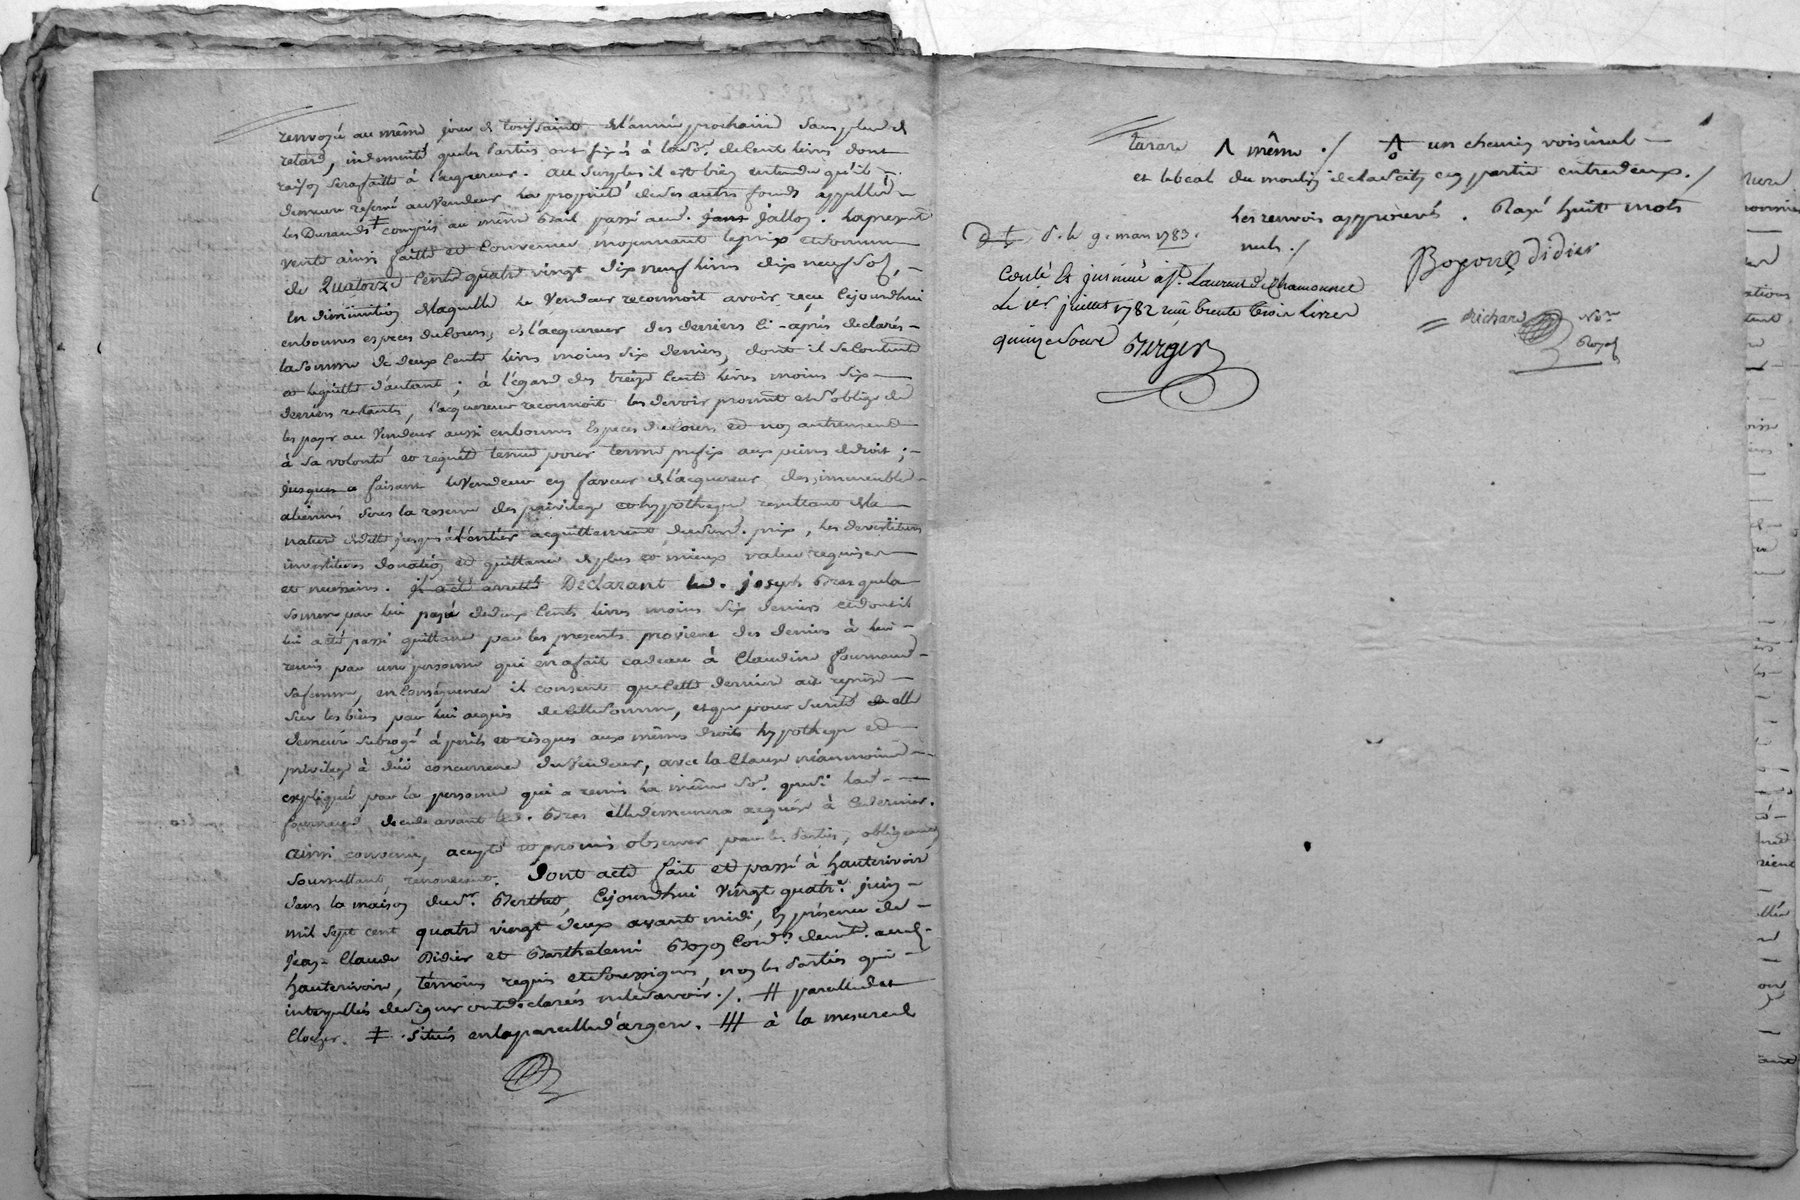 renvoyé au même jour de toussaint de l'année prochaine sans plus de
retard, indemnité que les parties ont fixés à lad. so. de cent livres dont
raison sera faitte à l'acquereur. au surplus il est bien entendu qu'il
demeure reservé au vendeur la propriété des autres fonds appellés
les Durands ‡ compris au même bail passé aud. Jallon. La presente
vente ainsi faitte et convenue moyennant le prix et somme
de Quatorze cents quatre vingt dix neuf livres dix neuf sols,
en diminution de laquelle le vendeur reconnoit avoir reçu cejourdhui
en bonnes especes du cours, de l'acquereur des deniers ci-après declarés
la somme de deux cents livres moins six deniers, dont il se contente
et le quitte d'autant ; à l'égard des treize cents livres moins six
deniers restants, l'acquereur reconnoit les devoir promet et s'oblige de
les payer au vendeur aussi en bonnes Especes du cours et non autrement
à sa volonté et requête tenue pour terme prefix aux peines de droit ;
jusques a faisant le vendeur en faveur de l'acquereur, des immeubles
alienés sous la reserve des privilege et hypotheque resultant de la
nature de dette jusques à l'entier acquittement dudit. prix, les devestitures
investitures donation et quittance de plus et mieux value requises
et necessaires. il a été arretté Declarant led. joseph Bras que la
somme par lui payé de deux cents livres moins six deniers et dont il
lui a été passé quittance par les presentes proviene des deniers à lui
remis par une personne qui en a fait cadeau à Claudine fournand
sa femme, en consequence il consent que cette derniere ait reprise
sur les biens par lui acquis de cette somme, et que pour sureté elle
demeure subrogé à perils et risques aux mêmes droits hypotheque et
privilege à dûë concurrence du vendeur, avec la clause néanmoins
expliqué par la personne qui a remis la même so. que si lad.
fournand, decede avant led. Bras elle demeurera acquise à ce dernier.
ainsi convenu, accepté et promis observer par les parties, obligeants
soumettants renonceants. Dont acte fait et passé à hauterivoire
dans la maison du sr. Berthet, cejourdhui vingt quatre. juin
mil sept cent quatre vingt deux avant midi, En présence de
Jean-Claude Didier et Barthelemi Boyon demt. aud.
hauterivoire, témoins requis et soussignés, non les parties qui
interpellés de signer ont declarés ne le savoir ./. # parelle dat
cloizer. ‡ situés en la parcelle d'argere. ⧻ à la mesure de
tarare Λ même ./ un chemin voisinal
et le beal du moulin de lad. cité en partie entre deux ./
les renvois approuvés. Rayé huit mots
nuls ./
d. le 9. mars 1783.
Boyon Didier
Conlé Et jnsinué à St. Laurent de Chamousset
Le 1er. juillet 1782 reçu trente trois livres
quinze sous Berger
Richard Nore.
Royal